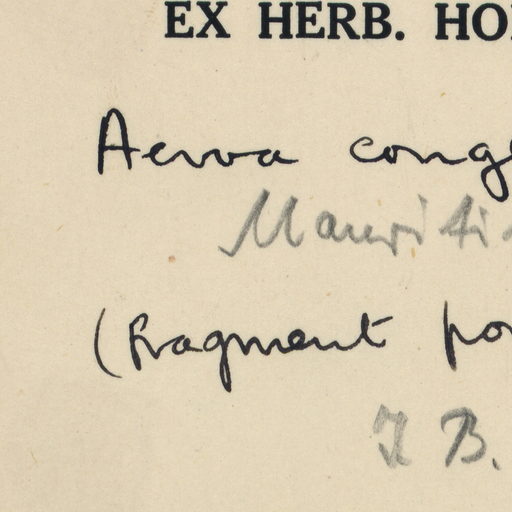 EX HERB. HO
Aerva cong
Mauriti
(fragment po
B.